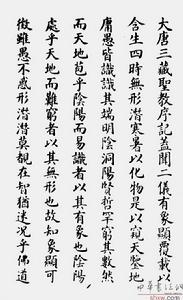 大唐三藏聖教序記蓋聞二儀有象顯覆載以
含生四時無形潛寒暑以化物是以窺天鑒地
庸愚皆識識其端明陰洞陽賢哲罕窮其數然
而天地苞乎陰陽而易識者以其有象也陰陽
處乎天地而難窮者以其無形也故知象顯可
徵雖愚不惑形潛潛莫覩在智猶迷況乎佛道